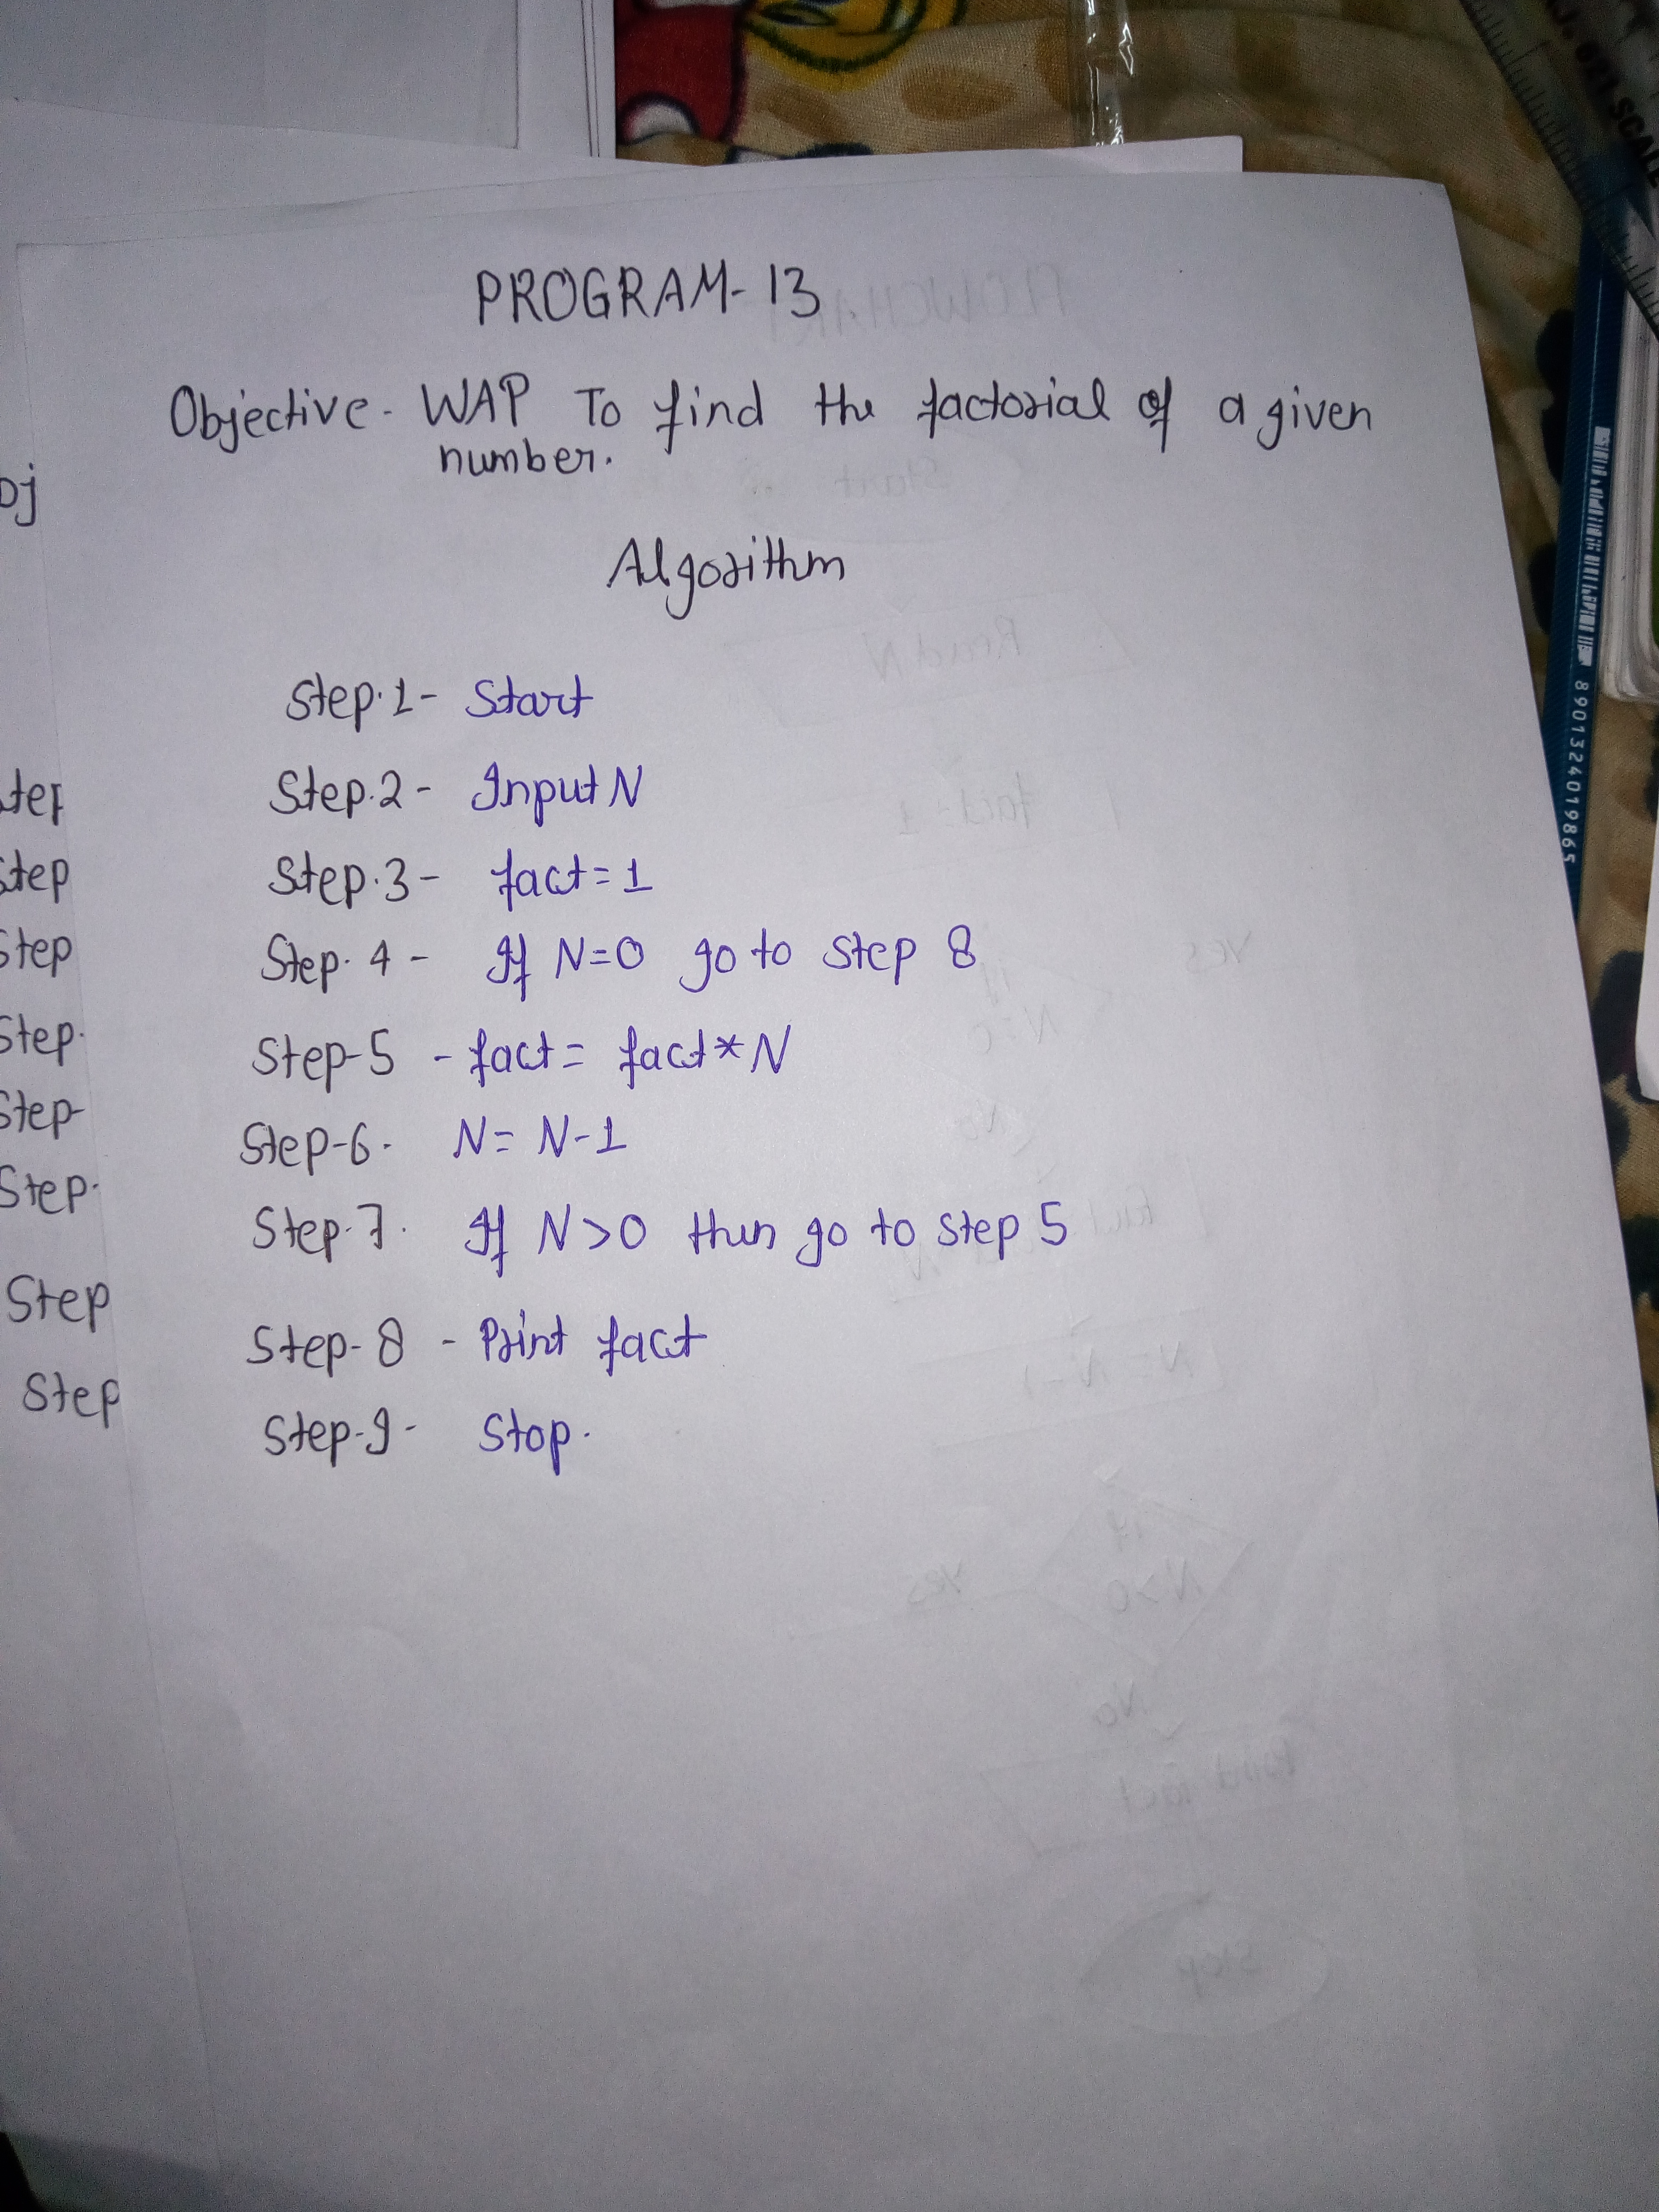 PROGRAM-13
Objective- WAP To find the factorial of a given
number.
Algorithm
Step.1- Start
Step.2- Input N
Step.3- fact=1
Step.4- If N=0 go to step 8
Step-5 - fact= fact*N
Step-6- N= N-1
Step-7. If N>0 then go to step 5
Step-8 - Print fact
Step-9- Stop.
Step
Step
Step
Step.
Step-
Step.
Step
Step
SCALE
8901324019865